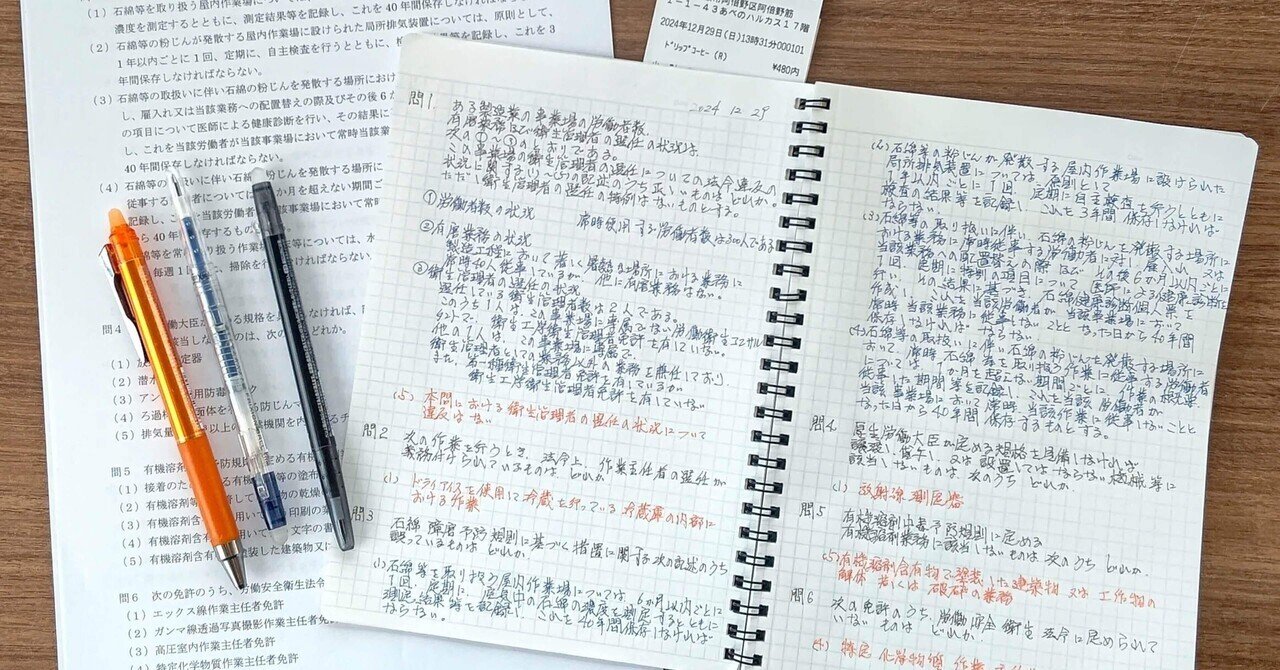 (1) 石綿等を取り扱う屋内作業場に
濃度を測定するとともに、測定結果等を記録し、これを40年間保存しなければ
(2) 石綿等の粉じんが発散する屋内作業場に設けられた局所排気装置については、原則として、
1年以内ごとに1回、定期に、自主検査を行うとともに、検
結果等を記録し、これを3
年間保存しなければならない。
(3) 石綿等の取扱いに伴い石綿の粉じんを発散する場所におけ
し、雇入れ又は当該業務への配置替えの際及びその後6か
の項目について医師による健康診断を行い、その結果に
し、これを当該労働者が当該事業場において常時当該業
40年間保存しなければならない。
(4) 石綿等の
扱いに伴い石綿の粉じんを発散する場所に
従事する
者については、
か月を超えない期間ご
記録し、これを当該労働
が当該事業場において常時
から40年
保存するものとする。
石綿等を常
取り扱う作業
等については、水
毎週1
掃除を行
問4
働大臣が
る規格を
しなければ
該当しない
のは、次の
どれか。
(1) 放
定器
(2) 潜水
(3) アン
用防毒
スク
(4) ろ過
面体を
る防じんマ
(5) 排気量
以上の
機関を内
するチ
問5 有機溶剤
予防規則に定める有機
(1) 接着のた
(2) 有機溶剤等
(3) 有機溶剤含有
用いて
印刷の業
(4) 有機溶剤含有
用いて
文字の書
(5) 有機溶剤含有
塗装した建築物又
問6 次の免許のうち、労働安全衛生法令
(1) エックス線作業主任者免許
(2) ガンマ線透過写真撮影作業主任者免許
(3) 高圧室内作業主任者免許
(4) 特定化学物質作業主任者免許
阿倍野区阿倍野筋
1-1-43あべのハルカス17階
2024年12月29日(日)13時31分000101
ドリップコーヒー (R)
¥480内
2024. 12. 29
問1. ある製造業の事業場の労働者数、
有害業務及び衛生管理者の選任の状況は、
次の①〜③のとおりである。
この事業場の衛生管理者の選任についての法令違反の
状況に関する(1)〜(5)の記述のうち正しいものはどれか。
ただし、衛生管理者の選任の特例はないものとする。
①労働者数の状況 常時使用する労働者数は300人である
②有害業務の状況
製造工程において著しく暑熱な場所における業務に
常時
人従事しているが、他に有害業務はない。
③衛生管理者の選任の状況
選任している衛生管理者数は2人である。
このうち1人は、この事業場に専属でない労働衛生コンサル
タントで、衛生工学衛生管理者免許を有していない。
他の1人は、この事業場に専属で、
衛生管理者としての業務以外の業務を兼任しており、
また、第一種衛生管理者免許を有しているが、
衛生工学衛生管理者免許を有していない
(5) 本問における衛生管理者の選任の状況について
違反はない
問2 次の作業を行うとき、法令上、作業主任者の選任が
義務付けられているものはどれか。
(1) ドライアイスを使用して冷蔵を行っている冷蔵庫の内部に
おける作業
問3 石綿障害予防規則に基づく措置に関する次の記述のうち
誤っているものはどれか。
(1)石綿等を取り扱う屋内作業場については、6か月以内ごとに
1回、定期に、空気中の石綿の濃度を測定するとともに
測定結果等を記録し、これを40年間保存しなければ
ならない。
(2)石綿等の粉じんが発散する屋内作業場に設けられた
局所排気装置については、原則として
1年以内ごとに1回、定期に自主検査を行うとともに
検査の結果等を記録し、これを3年間保存しなければ
ならない。
(3)石綿等の取り扱いに伴い、石綿の粉じんを発散する場所に
おける業務に常時従事する労働者に対し、雇入れ又は
当該業務への配置替えの際及びその後6か月以内ごとに
1回、定期に特別の項目について医師による健康診断を
行い、その結果に基づき、石綿健康診断個人票を
作成し、これを当該労働者が当該事業場において
常時当該業務に従事しないこととなった日から40年間
保存しなければならない。
(4)石綿等の取扱いに伴い石綿の粉じんを発散する場所に
おいて、常時石綿等を取り扱う作業に従事する労働者
については、1か月を超えない期間ごとに、作業の概要、
従事した期間等を記録し、これを当該労働者が
当該事業場において常時当該作業に従事しないことと
なった日から40年間保存するものとする。
問4 厚生労働大臣が定める規格を具備しなければ、
譲渡し、貸与し、又は設置してはならない機械等に
該当しないものは、次のうちどれか。
(1) 放射線測定器
問5 有機溶剤中毒予防規則に定める
有機溶剤業務に該当しないものは次のうちどれか。
(5)有機溶剤含有物で塗装した建築物又は工作物の
解体若しくは破砕の業務
問6 次の免許のうち、労働安全衛生法令に定められて
いないものはどれか。
(4) 特定化学物質作業主任